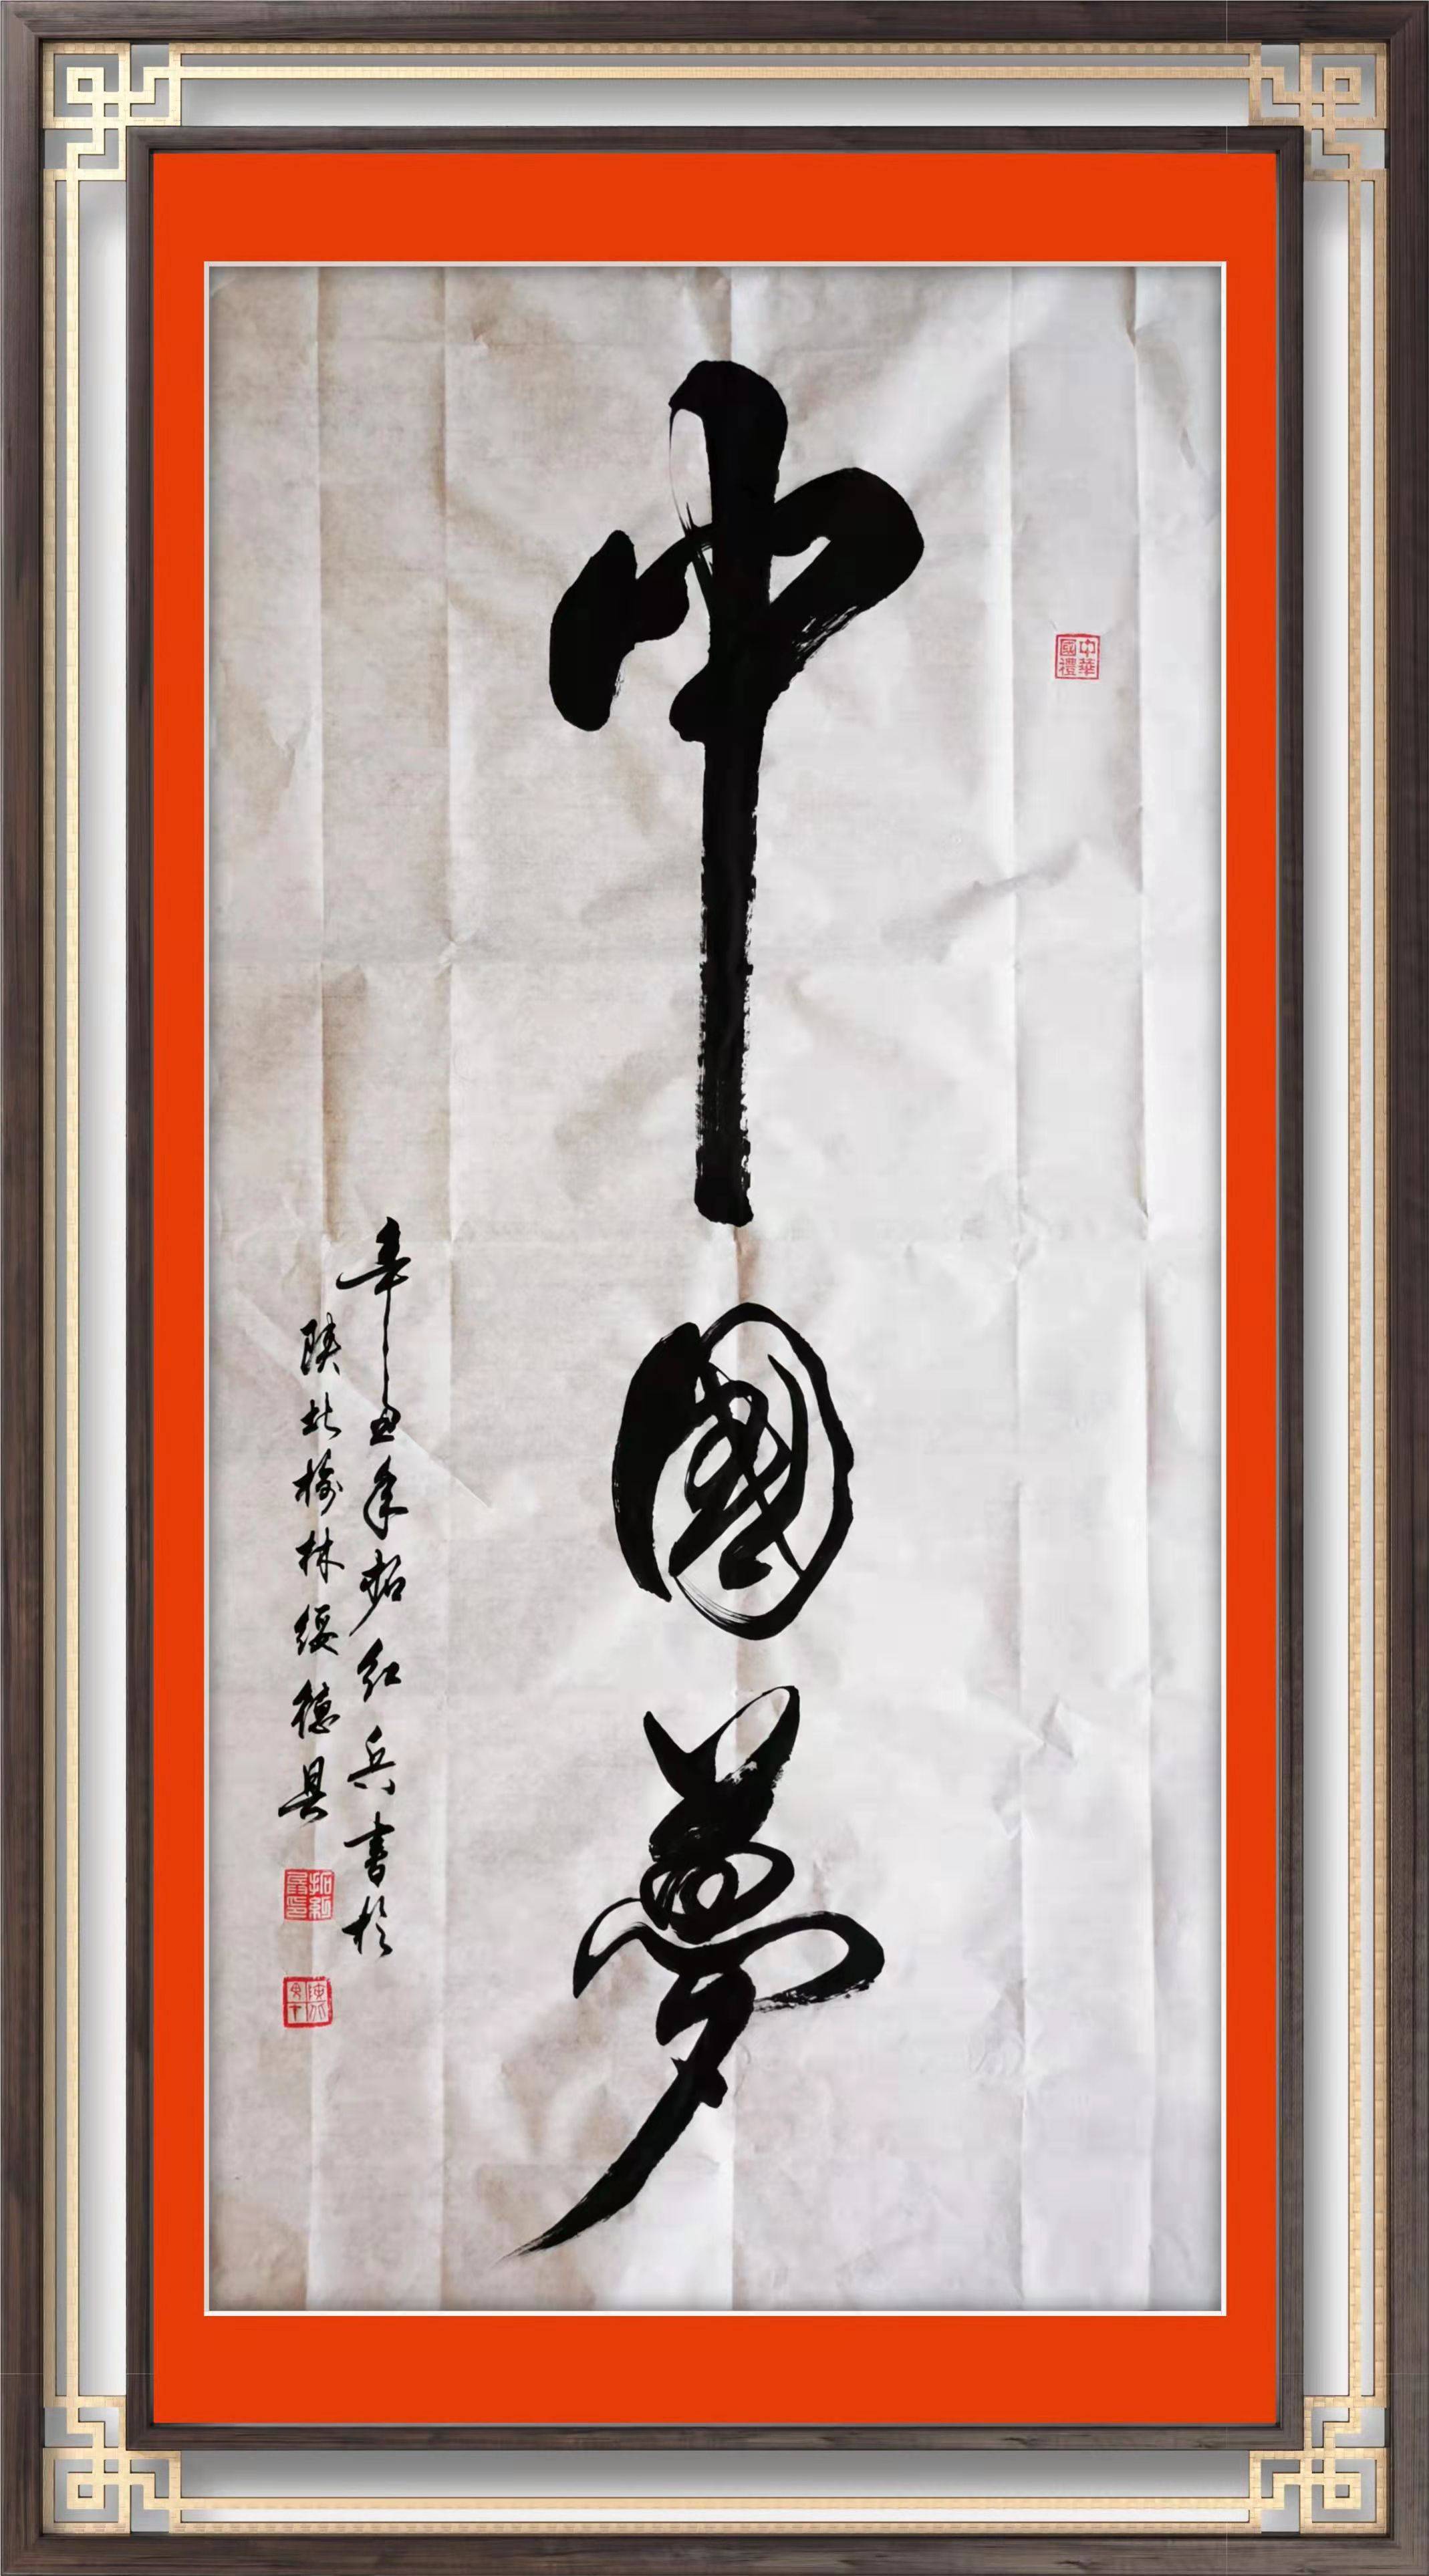 中國夢
中華國禮
辛丑年拓红兵書於
陕北榆林绥德县